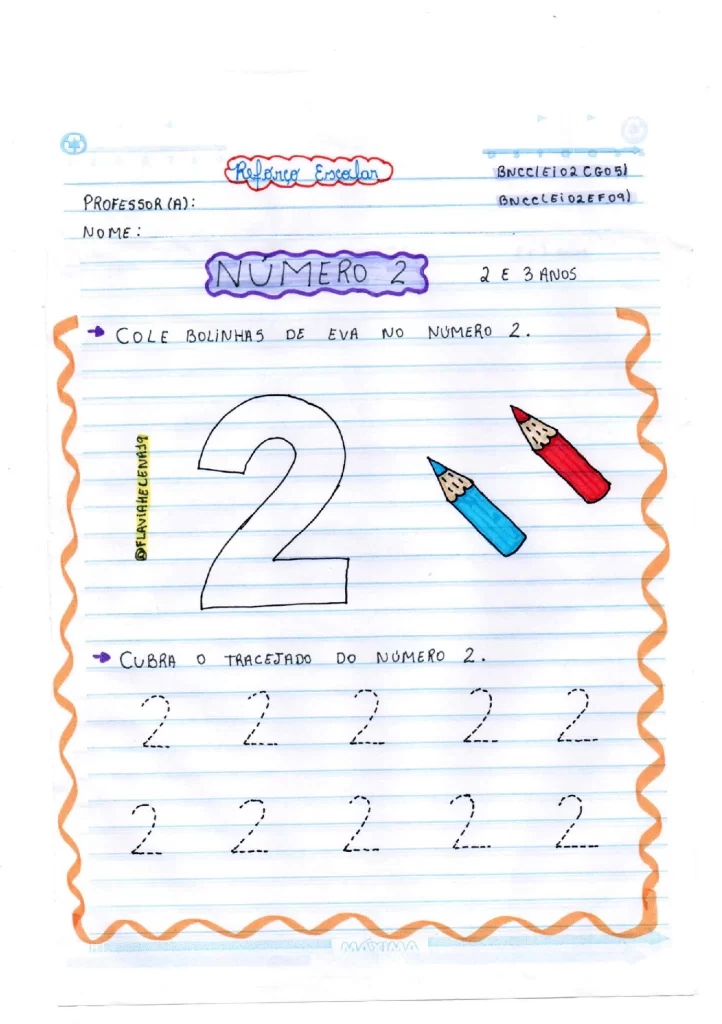 Reforço Escolar
BNCC(EI02CG05)
PROFESSOR(A):
BNCC(EI02EF09)
NOME:
NÚMERO 2
2 E 3 ANOS
COLE BOLINHAS DE EVA NO NÚMERO 2.
2
@FLAVIAHELENA19
CUBRA O TRACEJADO DO NÚMERO 2.
2 2 2 2 2
2 2 2 2 2
MÁXIMA